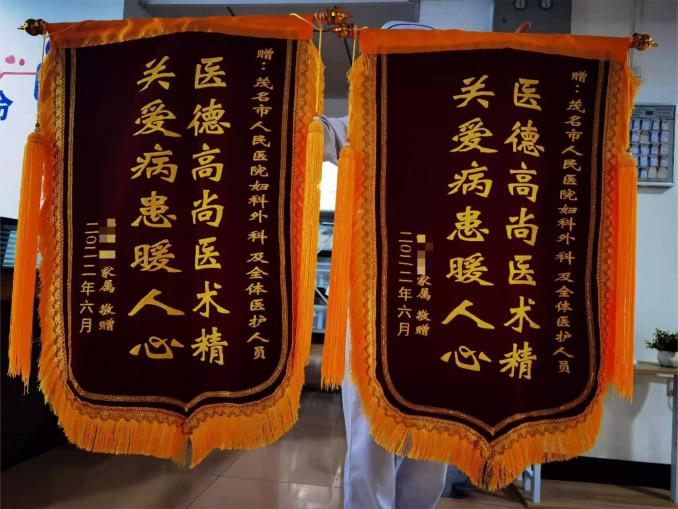 赠：茂名市人民医院妇科外科及全体医护人员
医德高尚医术精
关爱病患暖人心
家属 敬赠
二〇二二年六月
赠：茂名市人民医院妇科外科及全体医护人员
医德高尚医术精
关爱病患暖人心
家属 敬赠
二〇二二年六月